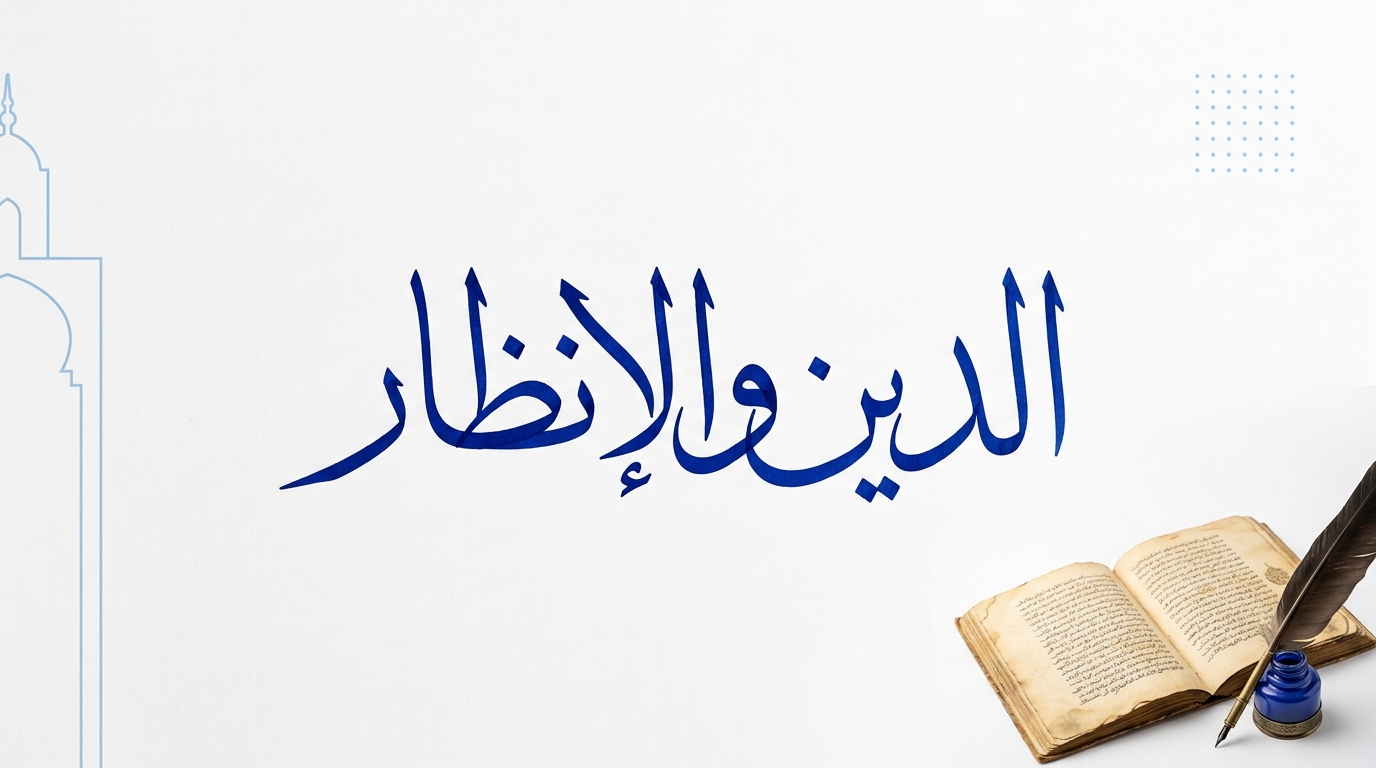 الدين والإنظار